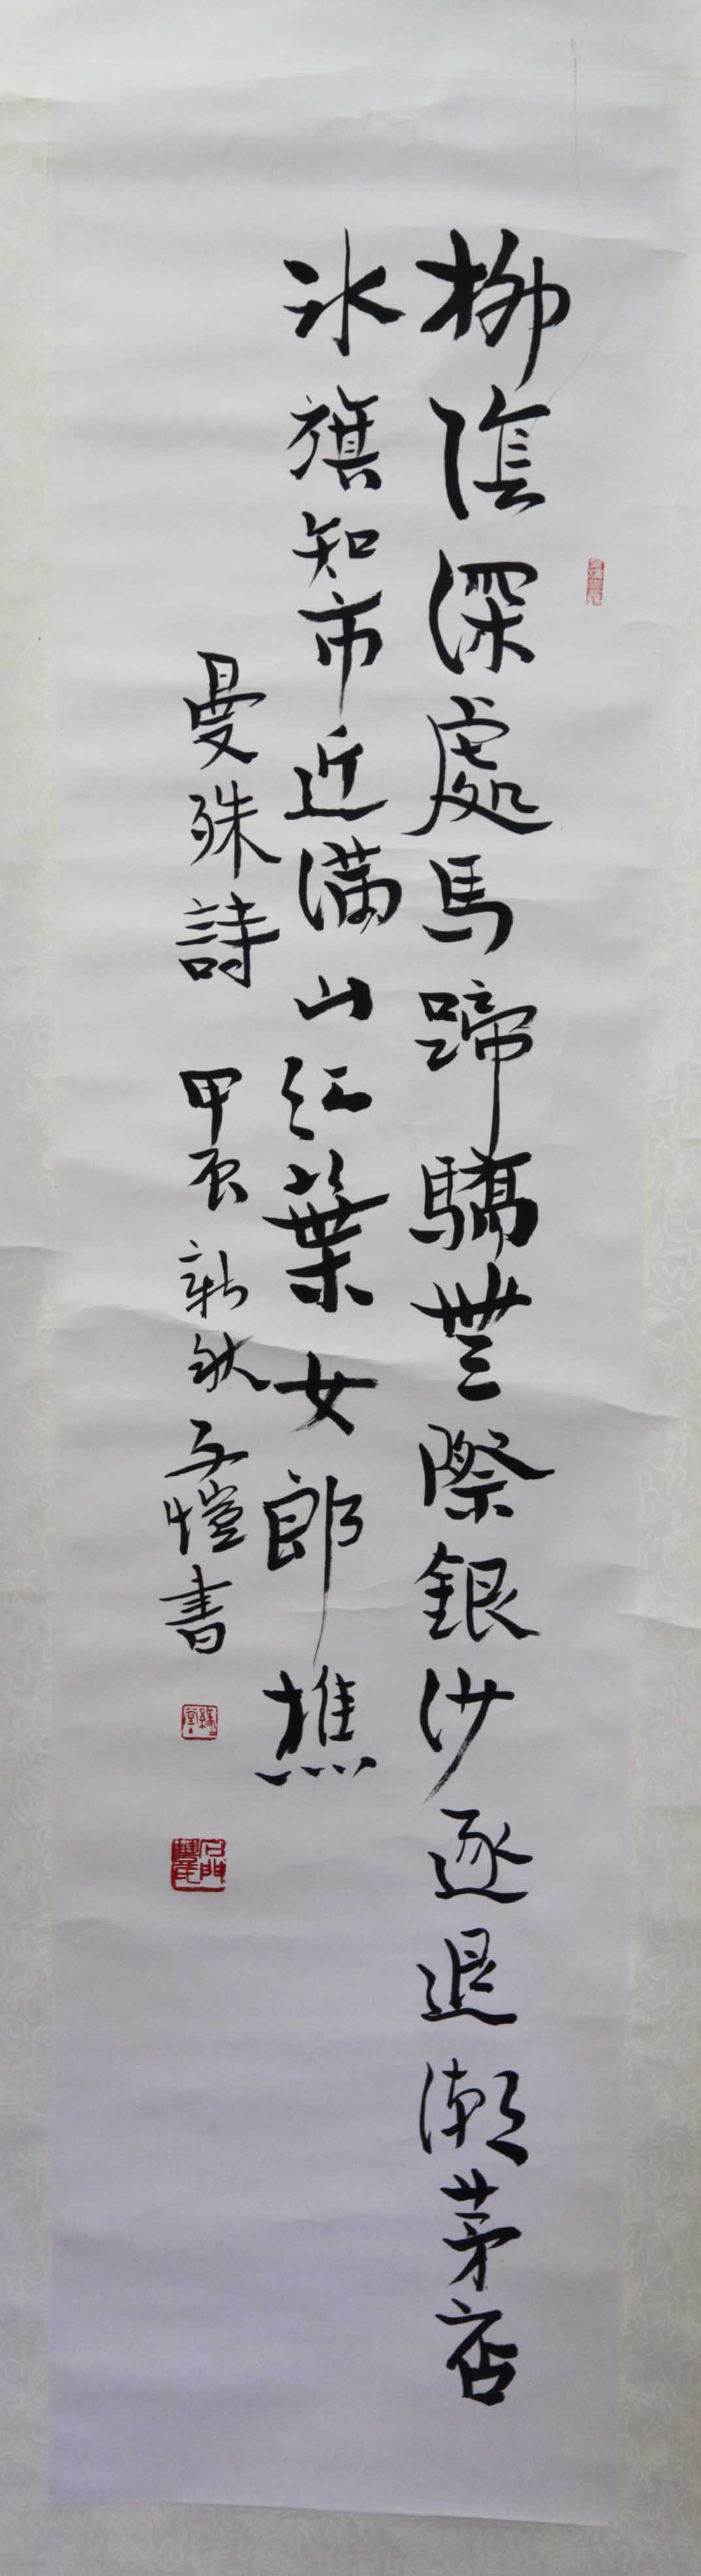 柳陰深處馬蹄驕無際銀沙逐退潮茅店
冰旗知市近滿山紅葉女郎樵
曼殊詩 甲辰新秋子愷書
石門豐氏